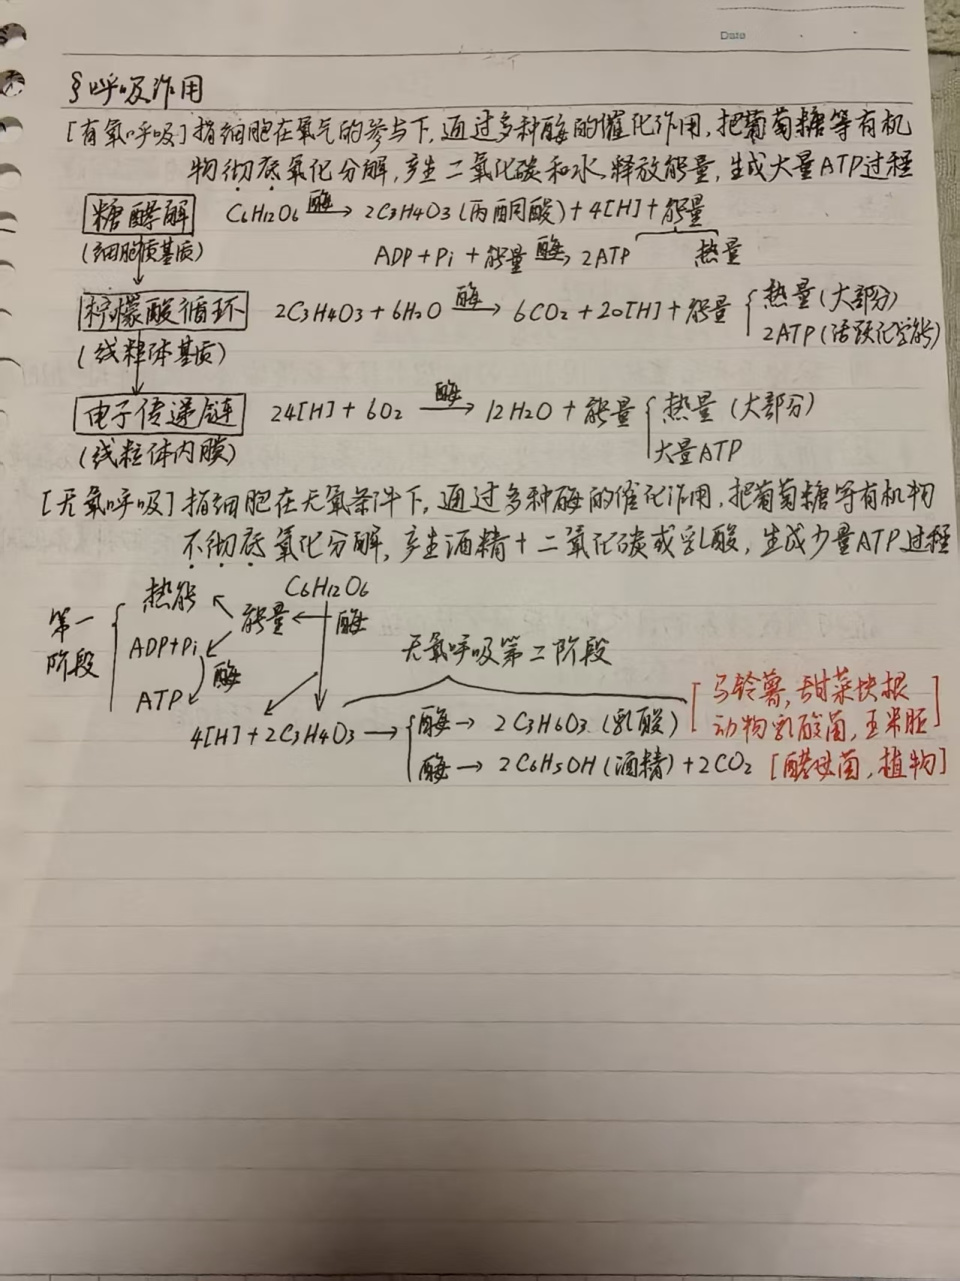 Date
§呼吸作用
[有氧呼吸]指细胞在氧气的参与下,通过多种酶的催化作用,把葡萄糖等有机
物彻底氧化分解,产生二氧化碳和水,释放能量,生成大量ATP过程
糖酵解 C6H12O6 酶→ 2C3H4O3(丙酮酸)+4[H]+能量
(细胞质基质) ADP+Pi+能量 酶→ 2ATP 热量
柠檬酸循环 2C3H4O3+6H2O 酶→ 6CO2+20[H]+能量 { 热量(大部分)
(线粒体基质) 2ATP(活跃化学能)
电子传递链 24[H]+6O2 酶→ 12H2O+能量 { 热量(大部分)
(线粒体内膜) 大量ATP
[无氧呼吸]指细胞在无氧条件下,通过多种酶的催化作用,把葡萄糖等有机物
不彻底氧化分解,产生酒精+二氧化碳或乳酸,生成少量ATP过程
第一阶段 { 热能 ← 能量 ← C6H12O6 酶
ADP+Pi 酶
ATP
无氧呼吸第二阶段
4[H]+2C3H4O3 → { 酶→ 2C3H6O3(乳酸) [马铃薯,甜菜块根
动物乳酸菌,玉米胚]
酶→ 2C6H5OH(酒精)+2CO2 [酵母菌,植物]